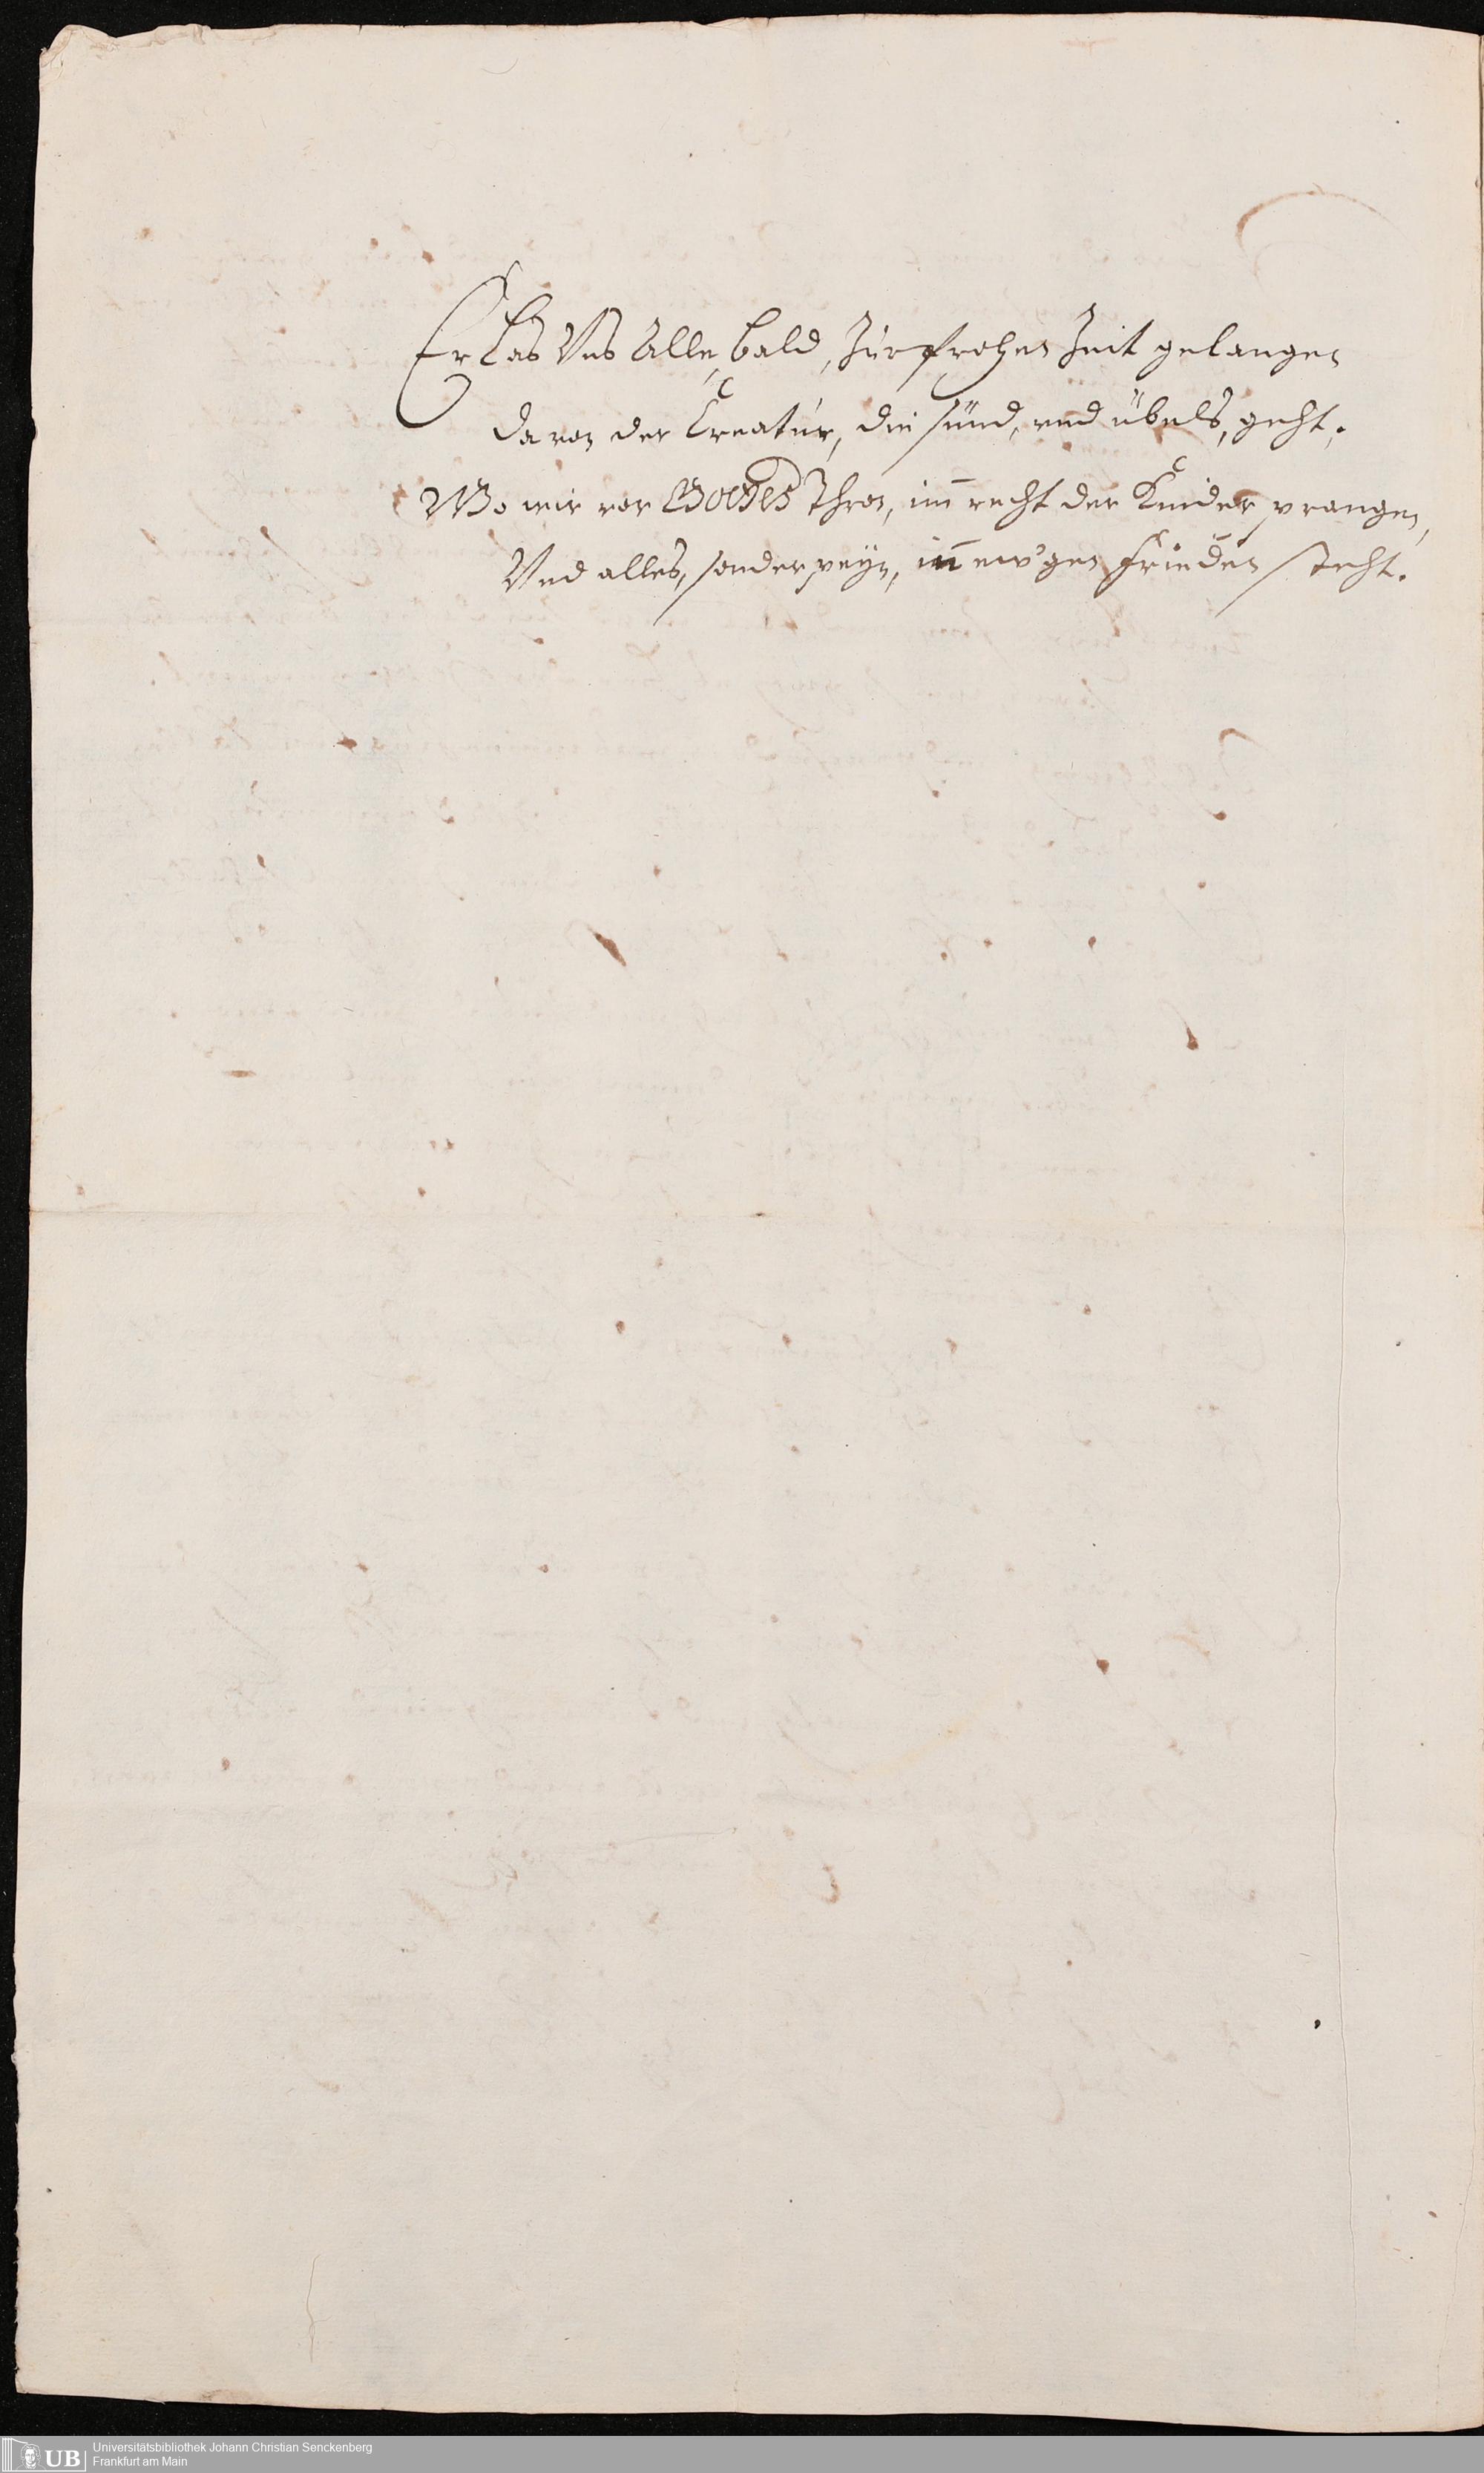 Er Las Uns Alle, bald, Zur frohen Zeit gelangen
da von der Creatur, die sünd, und übels, geht.
Wo wir vor Gottes Thron, im̄ recht der Kinder prangen,
Und alles, sonder peÿn, in̄ ew'gen Frieden steht.
UB Universitätsbibliothek Johann Christian Senckenberg
Frankfurt am Main